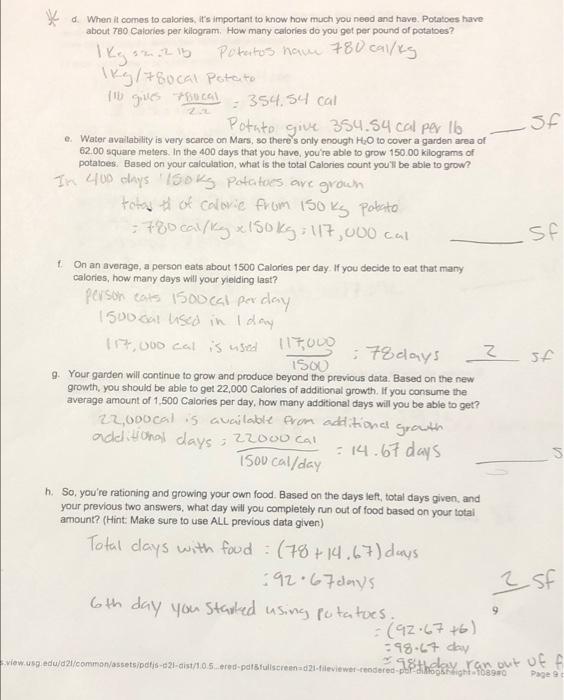 d. When it comes to calories, it's important to know how much you need and have. Potatoes have
about 780 Calories per kilogram. How many calories do you get per pound of potatoes?
1 Kg = 2.2 lb Potatos have 780 cal/kg
1Kg/780cal Potato
1lb gives 780cal/2.2 = 354.54 cal
Potato give 354.54 cal per lb ___ SF
e. Water availability is very scarce on Mars, so there's only enough H₂O to cover a garden area of
62.00 square meters. In the 400 days that you have, you're able to grow 150.00 kilograms of
potatoes. Based on your calculation, what is the total Calories count you'll be able to grow?
In 400 days 150 Kg Potatoes are grown
total # of calorie from 150 Kg Potato
= 780 cal/Kg x 150 Kg = 117,000 cal ___ SF
f. On an average, a person eats about 1500 Calories per day. If you decide to eat that many
calories, how many days will your yielding last?
Person eats 1500 cal per day
1500 cal used in 1 day
117,000 cal is used 117,000/1500 = 78 days 2 SF
g. Your garden will continue to grow and produce beyond the previous data. Based on the new
growth, you should be able to get 22,000 Calories of additional growth. If you consume the
average amount of 1,500 Calories per day, how many additional days will you be able to get?
22,000 cal is available from additional growth
additional days = 22000 cal/1500 cal/day = 14.67 days ___ S
h. So, you're rationing and growing your own food. Based on the days left, total days given, and
your previous two answers, what day will you completely run out of food based on your total
amount? (Hint: Make sure to use ALL previous data given)
Total days with food = (78 + 14.67) days
= 92.67 days 2 SF
6th day you started using potatoes. 9
= (92.67 + 6)
= 98.67 day
= 98th day ran out of f
s.view.usg.edu/d2l/common/assets/pdfjs-d2l-dist/1.0.5... Page 9